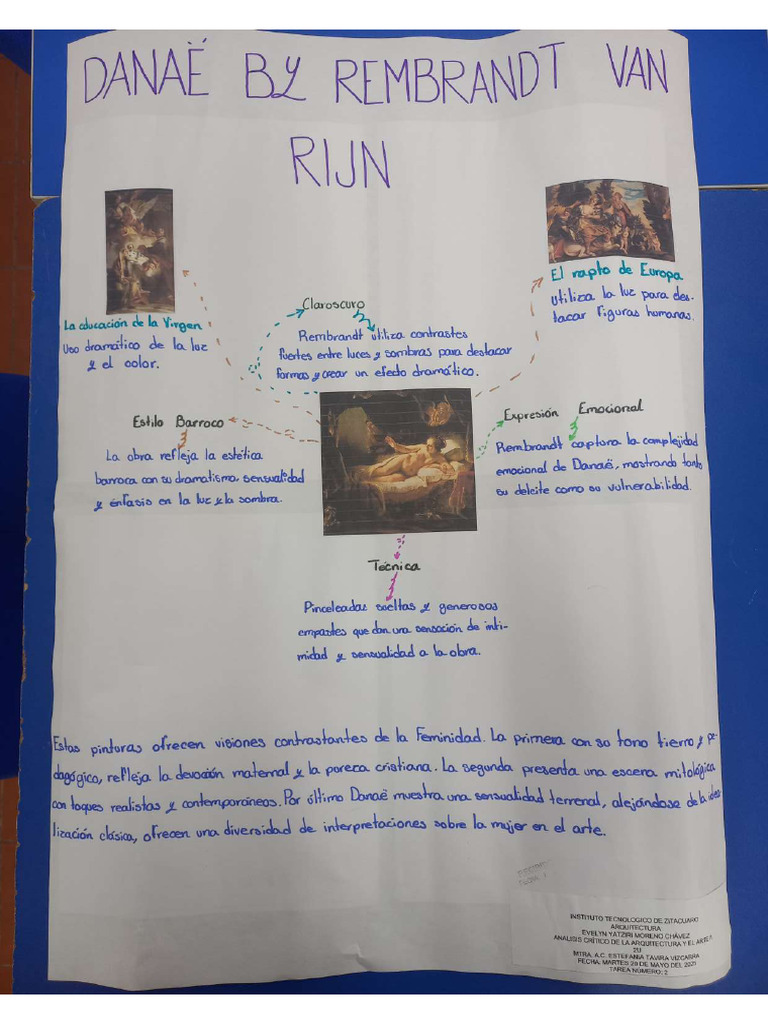 DANAË BY REMBRANDT VAN
RIJN
La educación de la Virgen
Uso dramático de la luz
y el color.
Claroscuro
Rembrandt utiliza contrastes
fuertes entre luces y sombras para destacar
formas y crear un efecto dramático.
El rapto de Europa
utiliza la luz para des-
tacar figuras humanas.
Estilo Barroco
La obra refleja la estética
barroca con su dramatismo, sensualidad
y énfasis en la luz y la sombra.
Expresión Emocional
Rembrandt captura la complejidad
emocional de Danaë, mostrando tanto
su deleite como su vulnerabilidad.
Técnica
Pinceladas sueltas y generosos
empastes que dan una sensación de inti-
midad y sensualidad a la obra.
Estas pinturas ofrecen visiones contrastantes de la Feminidad. La primera con su tono tierno y pe-
dagógico, refleja la devoción maternal y la pureza cristiana. La segunda presenta una escena mitológica
con toques realistas y contemporáneos. Por último Danaë muestra una sensualidad terrenal, alejándose de la idea
lización clásica, ofrecen una diversidad de interpretaciones sobre la mujer en el arte.
INSTITUTO TECNOLOGICO DE ZITACUARO
ARQUITECTURA
EVELYN YATZIRI MORENO CHÁVEZ
ANALISIS CRÍTICO DE LA ARQUITECTURA Y EL ARTE
2U
MTRA. A.C. ESTEFANIA TAVIRA VIZCARRA
FECHA: MARTES 20 DE MAYO DEL 2025
TAREA NÚMERO: 2